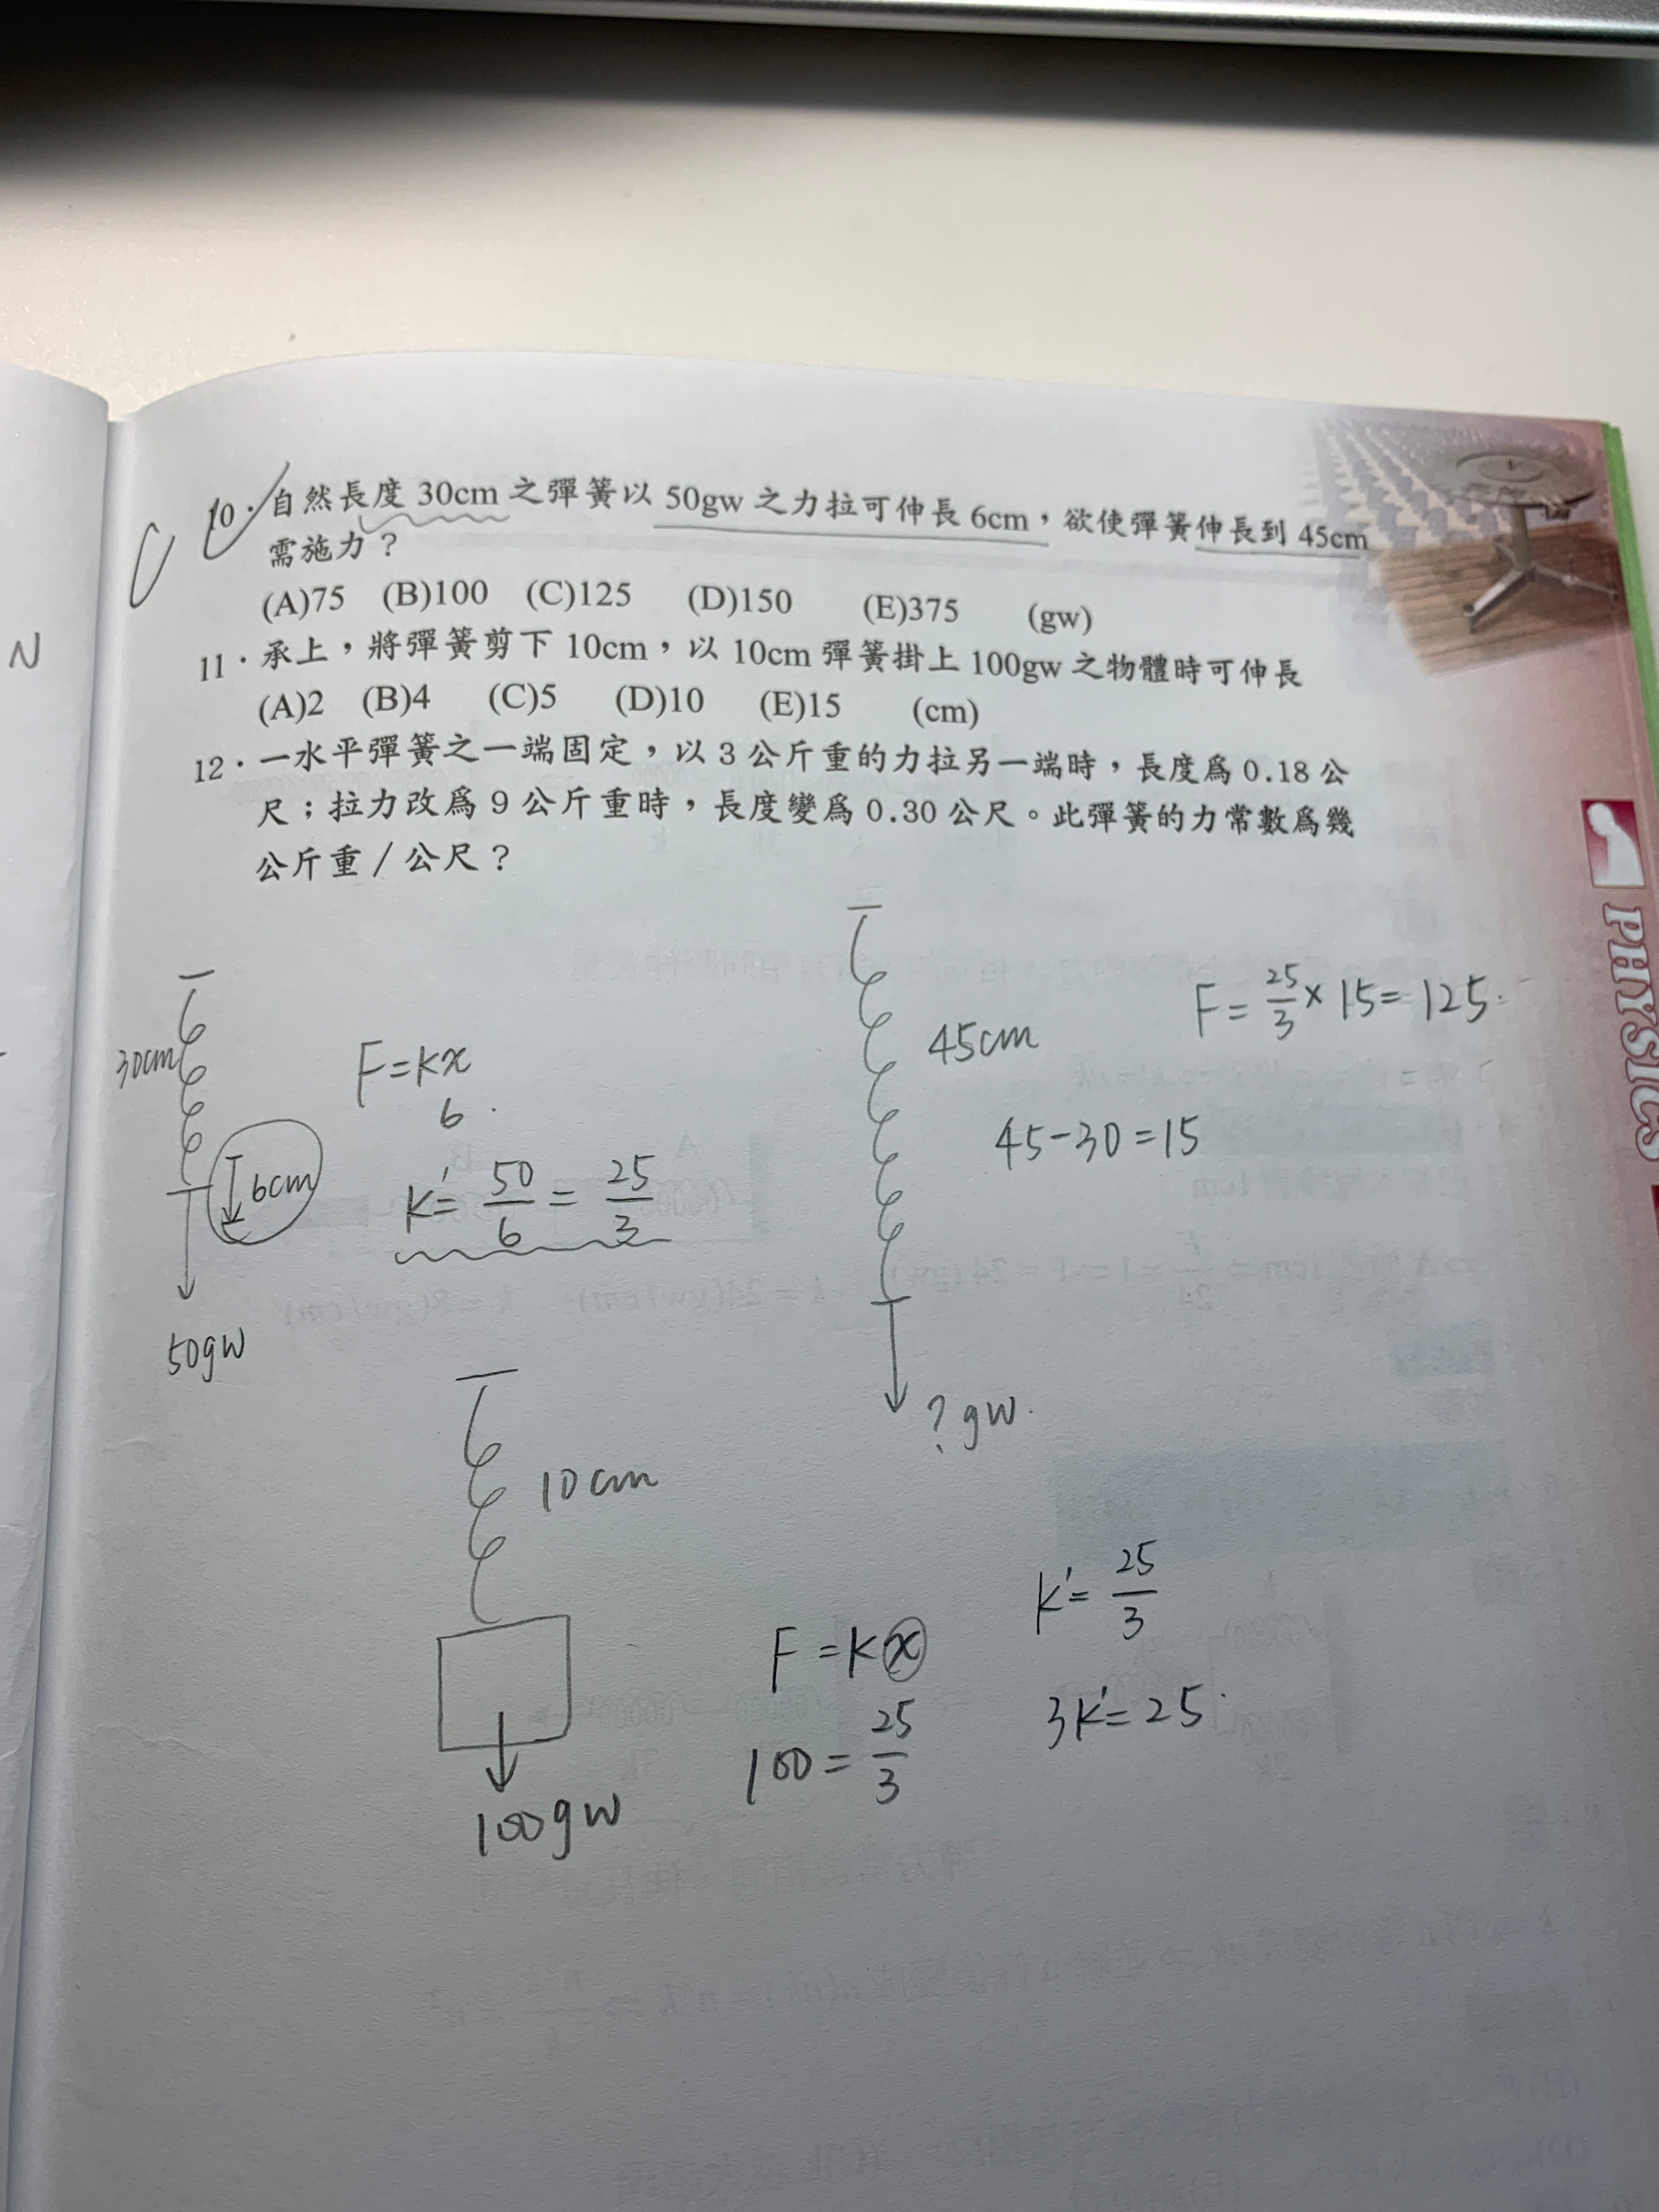 10．自然長度 30cm 之彈簧以 50gw 之力拉可伸長 6cm，欲使彈簧伸長到 45cm
需施力？
(A)75 (B)100 (C)125 (D)150 (E)375 (gw)
11．承上，將彈簧剪下 10cm，以 10cm 彈簧掛上 100gw 之物體時可伸長
(A)2 (B)4 (C)5 (D)10 (E)15 (cm)
12．一水平彈簧之一端固定，以 3 公斤重的力拉另一端時，長度爲 0.18 公
尺；拉力改爲 9 公斤重時，長度變爲 0.30 公尺。此彈簧的力常數爲幾
公斤重／公尺？
C
N
PHYSICS
30cm
6cm
50gw
F=kx
6
k'=50/6=25/3
45cm
F=25/3×15=125
45-30=15
?gw
10cm
100gw
F=kx
100=25/3
k'=25/3
3k'=25